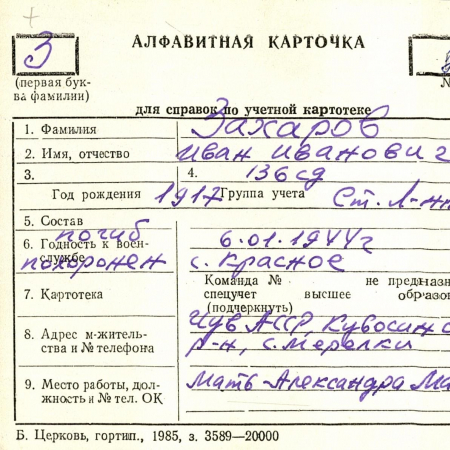 З
АЛФАВИТНАЯ КАРТОЧКА
(первая бук-
ва фамилии)
№
для справок по учетной картотеке
1. Фамилия Захаров
2. Имя, отчество Иван Иванович
3. 4. 136 сд
Год рождения 1917 Группа учета Ст. Л-н
5. Состав
погиб
6. Годность к воен- 6.01.1944г
службе
похоронен с. Красное
Команда № не предназн
7. Картотека спецучет высшее образо
(подчеркнуть)
Чув АССР, Кувосинс
8. Адрес м-житель-
ства и № телефона р-н, с. Мералки
9. Место работы, дол- Мать-Александра Ма
жность и № тел. ОК
Б. Церковь, гортип., 1985, з. 3589—20000